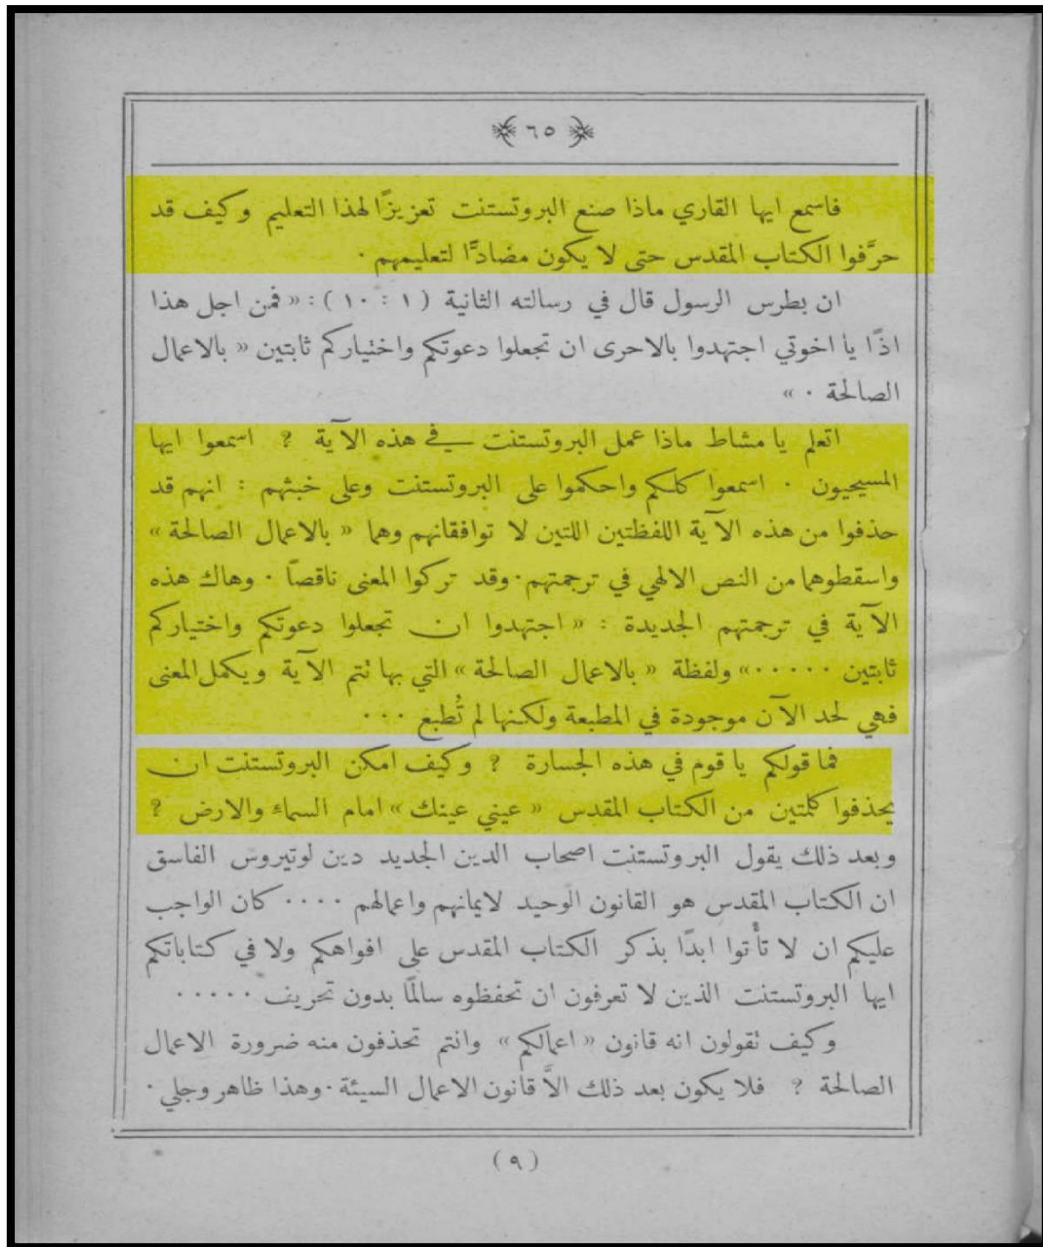 ٦٥
فاسمع ايها القاري ماذا صنع البروتستنت تعزيزًا لهذا التعليم وكيف قد
حرَّفوا الكتاب المقدس حتى لا يكون مضادًّا لتعليمهم ·
ان بطرس الرسول قال في رسالته الثانية ( ١ : ١٠ ) : « فمن اجل هذا
اذًا يا اخوتي اجتهدوا بالاحرى ان تجعلوا دعوتكم واختياركم ثابتين « بالاعمال
الصالحة · »
اتعلم يا مشاط ماذا عمل البروتستنت في هذه الآية ? اسمعوا ايها
المسيحيون · اسمعوا كلكم واحكموا على البروتستنت وعلى خبثهم : انهم قد
حذفوا من هذه الآية اللفظتين اللتين لا توافقانهم وهما « بالاعمال الصالحة »
واسقطوهما من النص الالهي في ترجمتهم · وقد تركوا المعنى ناقصًا · وهاك هذه
الآية في ترجمتهم الجديدة : « اجتهدوا ان تجعلوا دعوتكم واختياركم
ثابتين ····· » ولفظة « بالاعمال الصالحة » التي بها تتم الآية ويكمل المعنى
فهي لحد الآن موجودة في المطبعة ولكنها لم تُطبع ···
فما قولكم يا قوم في هذه الجسارة ? وكيف امكن البروتستنت ان
يحذفوا كلمتين من الكتاب المقدس « عيني عينك » امام السماء والارض ?
وبعد ذلك يقول البروتستنت اصحاب الدين الجديد دين لوتيروس الفاسق
ان الكتاب المقدس هو القانون الوحيد لايمانهم واعمالهم ···· كان الواجب
عليكم ان لا تأتوا ابدًا بذكر الكتاب المقدس على افواهكم ولا في كتاباتكم
ايها البروتستنت الذين لا تعرفون ان تحفظوه سالمًا بدون تحريف ·····
وكيف تقولون انه قانون « اعمالكم » وانتم تحذفون منه ضرورة الاعمال
الصالحة ? فلا يكون بعد ذلك الاَّ قانون الاعمال السيئة · وهذا ظاهر وجلي ·
( ٩ )